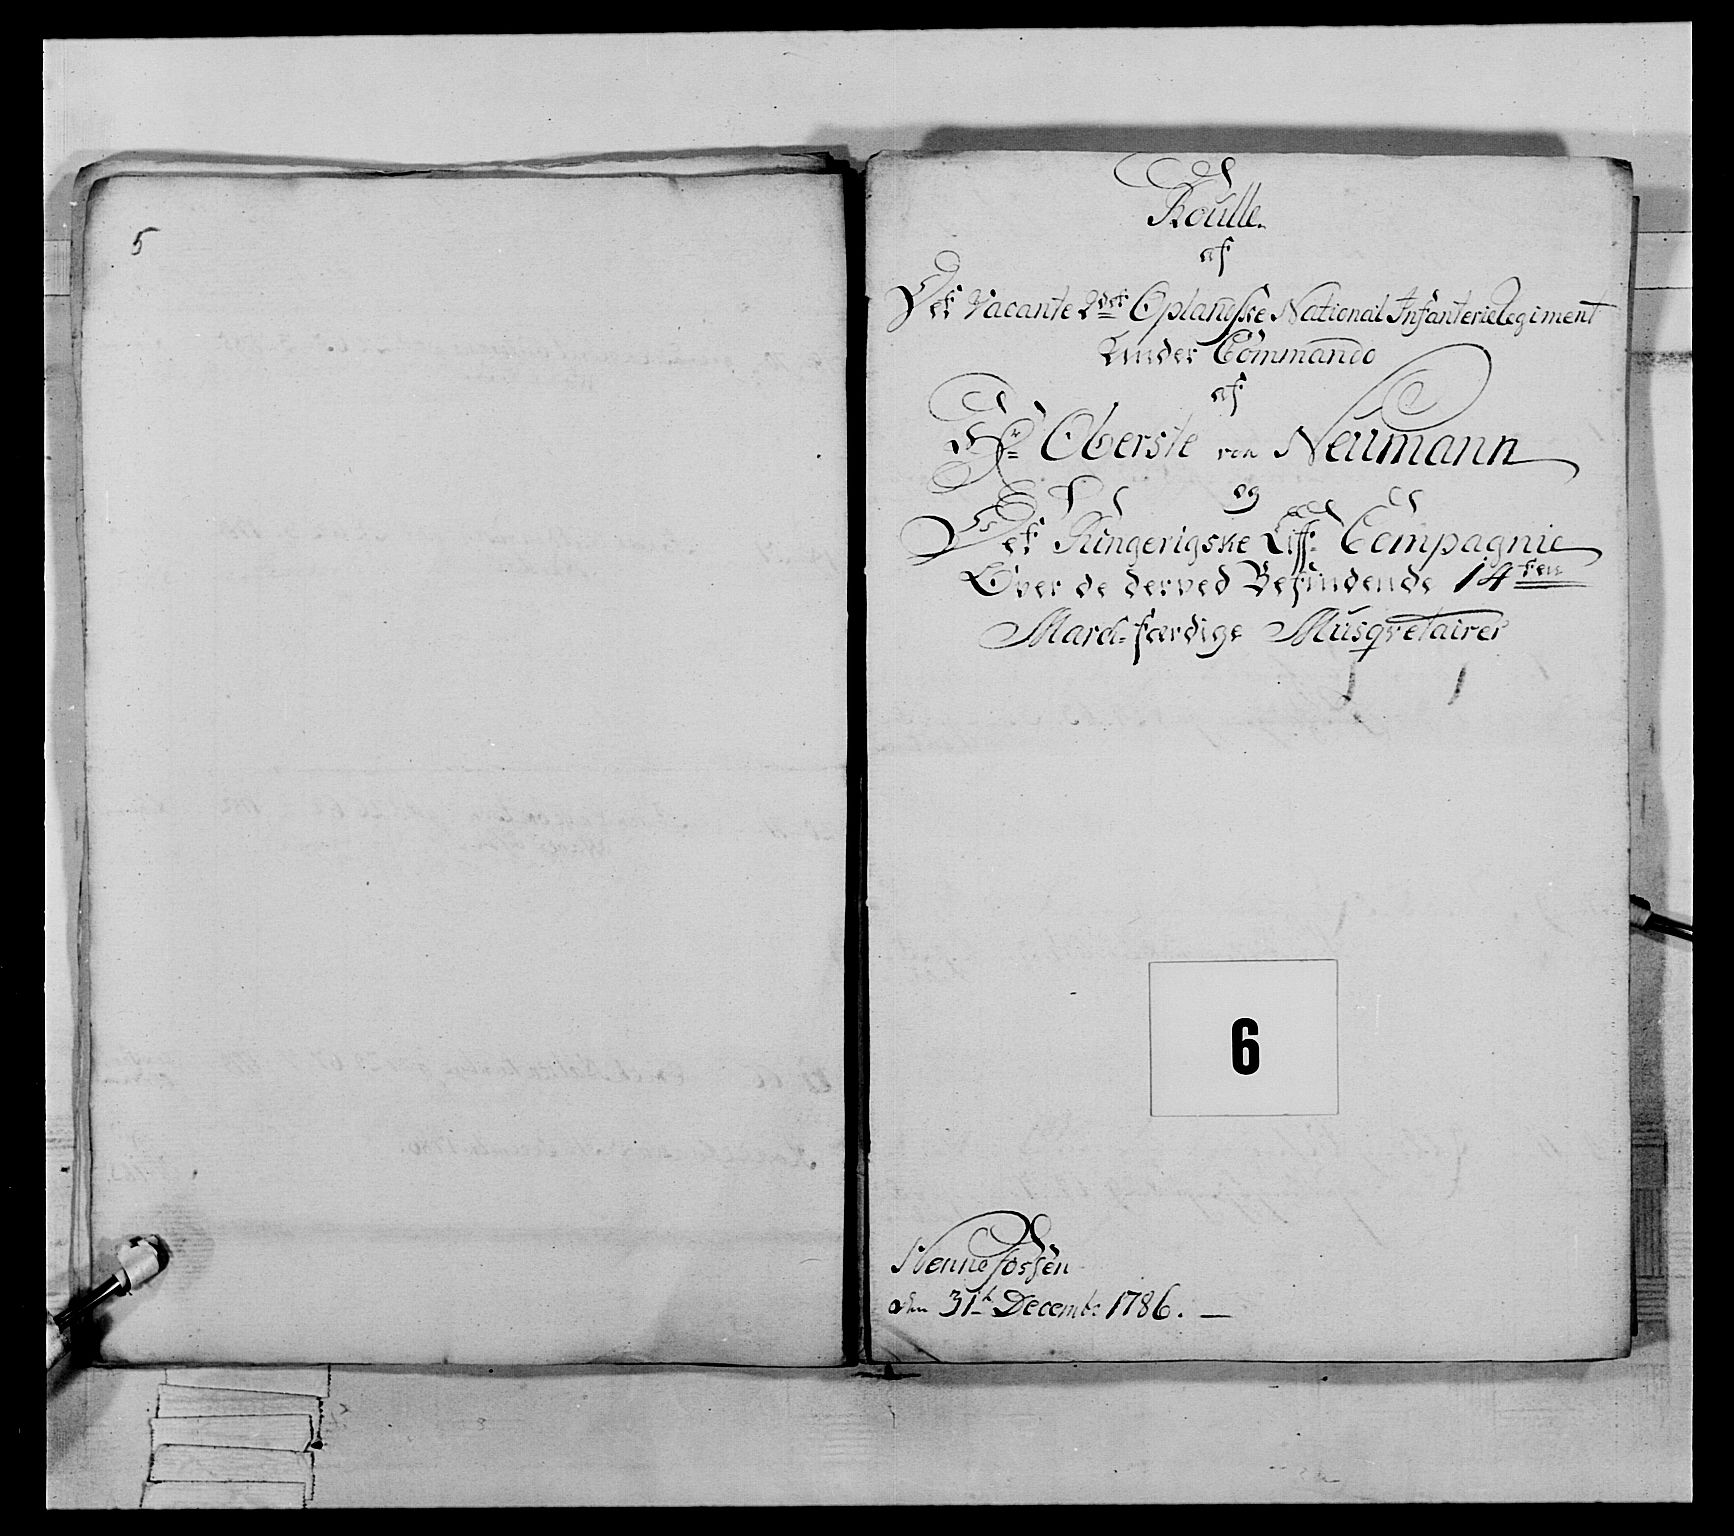 5
Roulle
af
Det Vacante 2det Oplandske National Infanterie Regiment
Under Commando
af
Hr Oberste von Neumann
og
Det Ringerigske Liff Compagnie
Over de derved Befindende 14ten
March-færdige Musqvetairer
6
Hennefossen
den 31t Decembr 1786. —